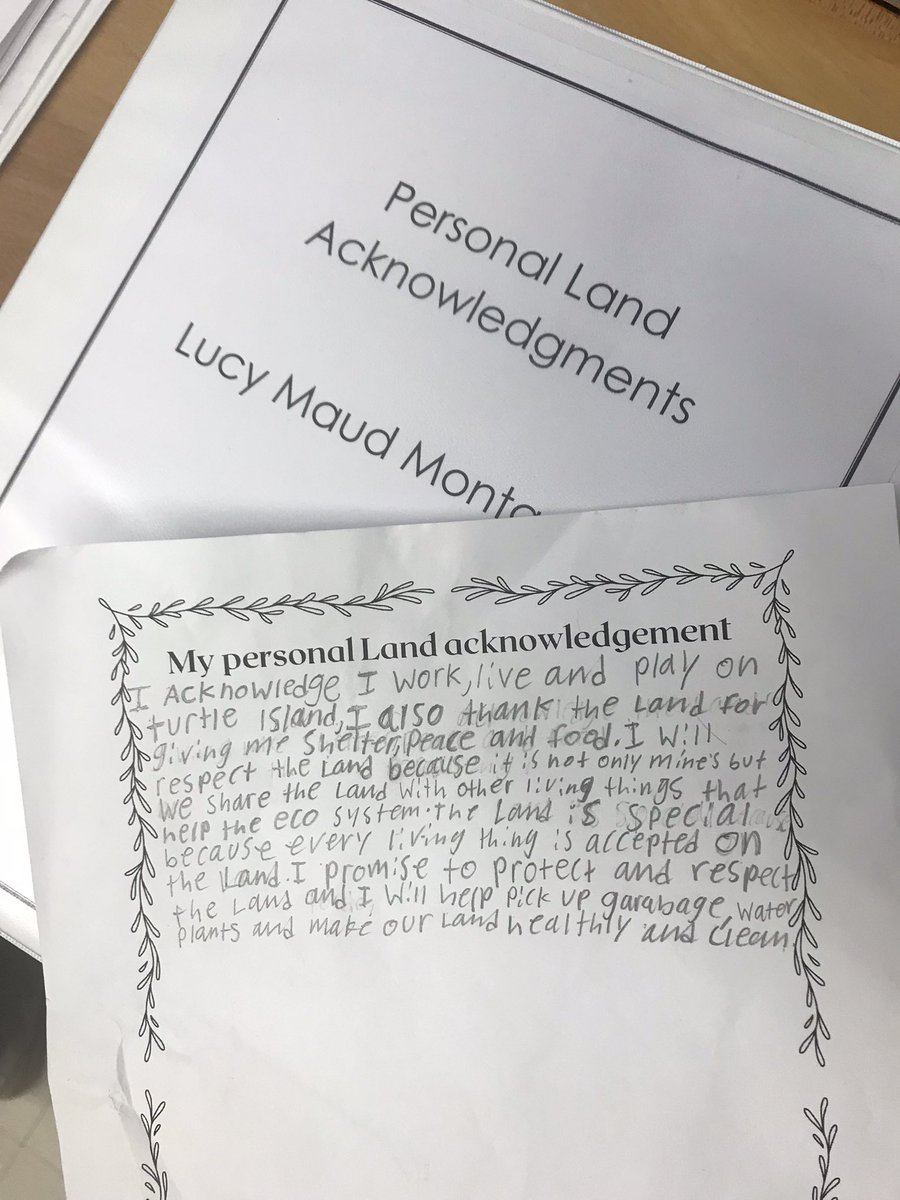 Personal Land
Acknowledgments
Lucy Maud Monta
My personal Land acknowledgement
I Acknowledge I work, live and play on
turtle Island, I also thank the Land for
giving me Shelter, Peace and food. I will
respect the Land because it is not only mine's but
we share the Land with other living things that
help the eco system. the Land is special
because every living thing is accepted on
the Land. I promise to protect and respect
the Land and I will help pick up garabage, water
plants and make our Land healthly and clean.